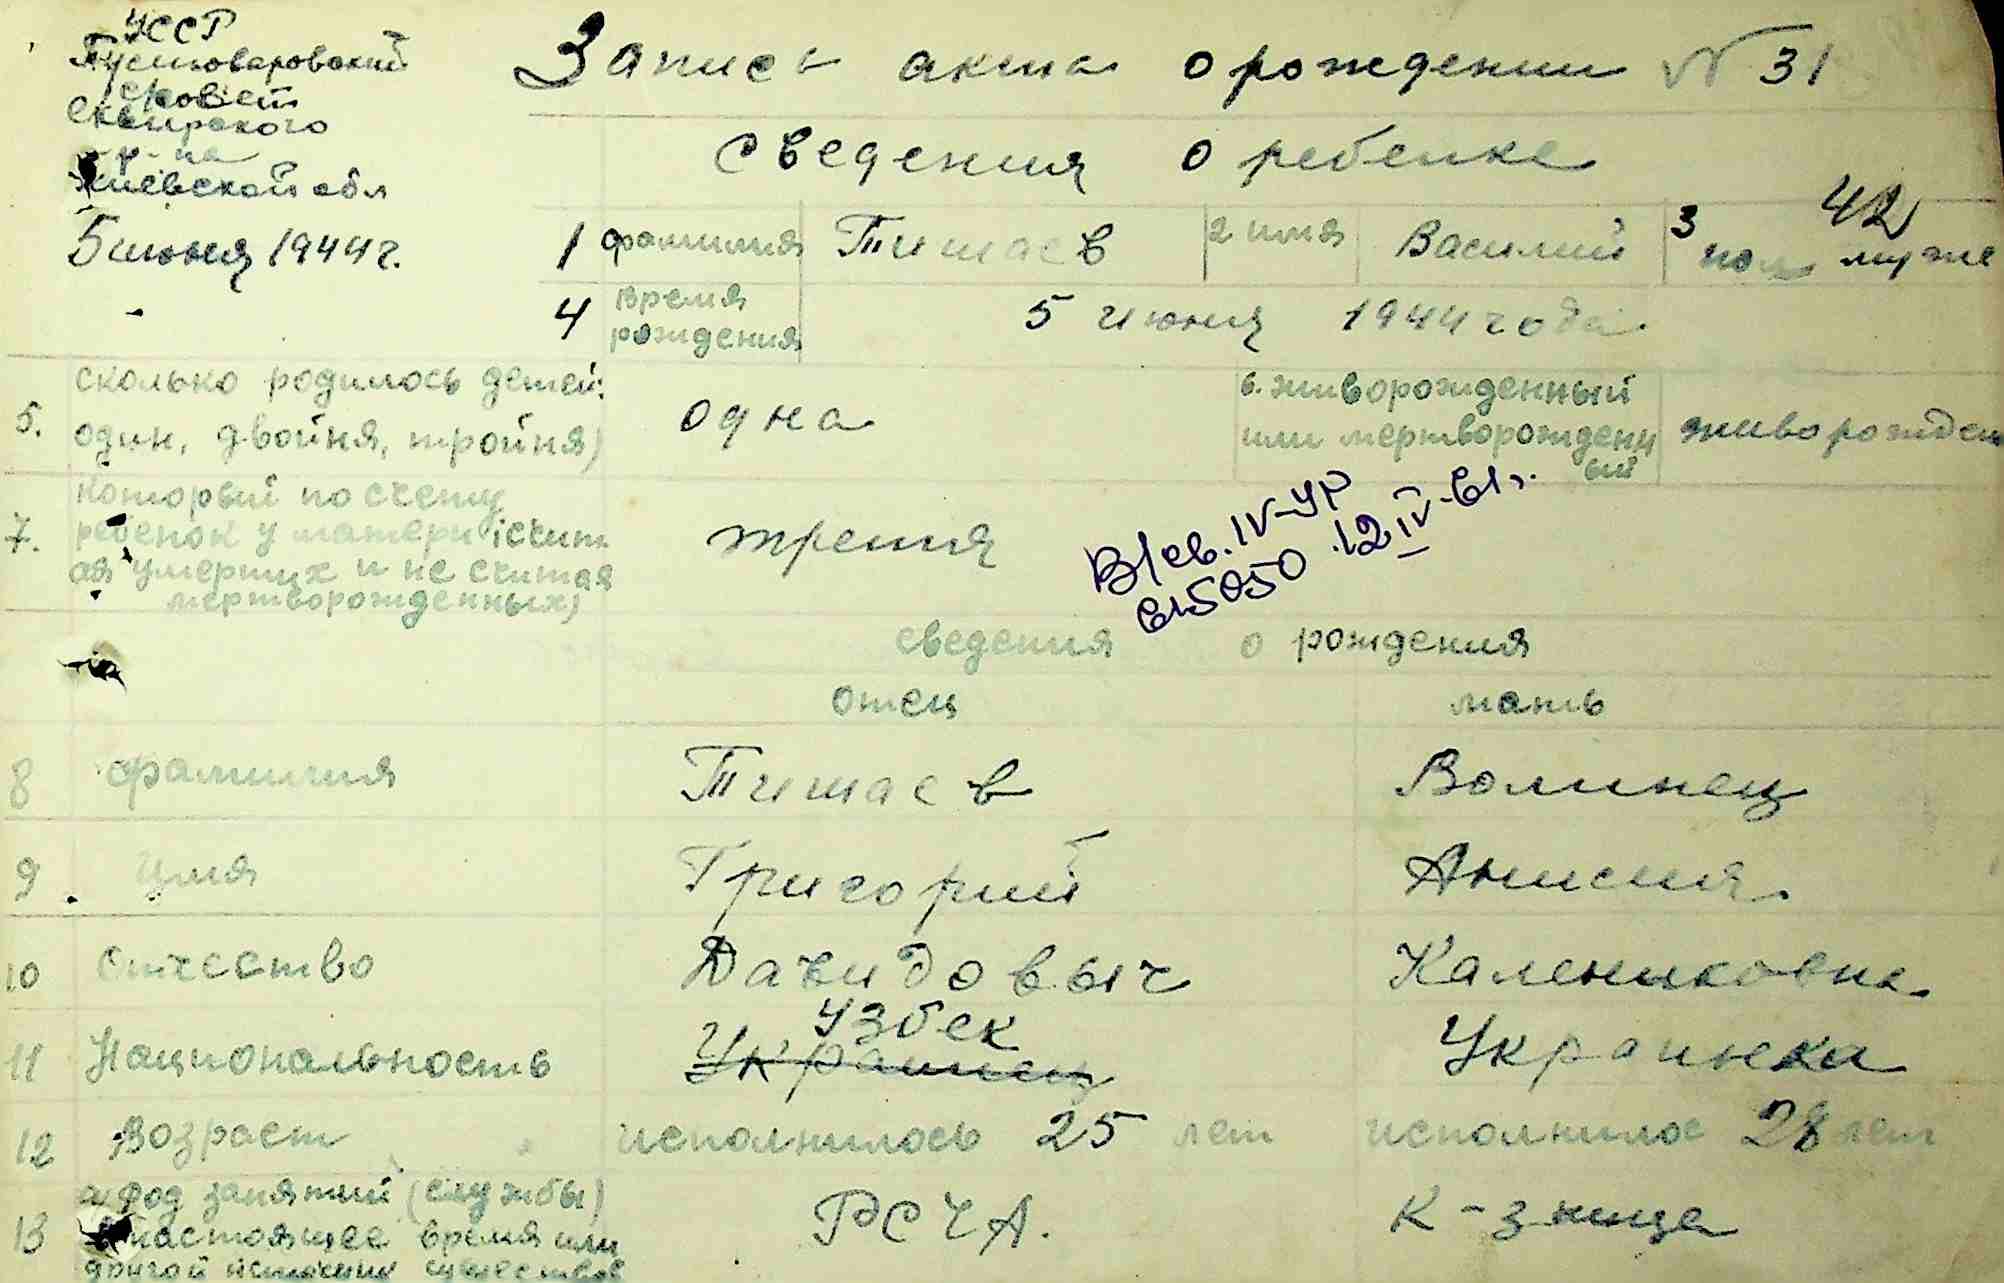 УССР
Пустоваровский
с/совет
Сквирского
р-на
Киевской обл
5 июня 1944 г.
Запись акта о рождении № 31
сведения о ребенке
42
1 фамилия Тишаев 2 имя Василий 3 пол муже
4 время рождения 5 июня 1944 года
5. сколько родилось детей:
один, двойня, тройня) одна
6. живорожденный
или мертворожденн
ый живорожден
7. который по счету
ребенок у матери (счит
ая умерших и не считая
мертворожденных) третия
В/св. IV-УР
615050 12 IV-61г.
сведения о рождения
отец мать
8 фамилия Тишаев Волинец
9 имя Григорий Анисия
10 отчество Давидовыч Калениковна
узбек
11 Национальность Украинец Украинка
12 Возраст исполнилось 25 лет исполнилос 28 лет
13 а) род занятий (службы)
в настоящее время или
другой источник существов
РСЧА. к-зница